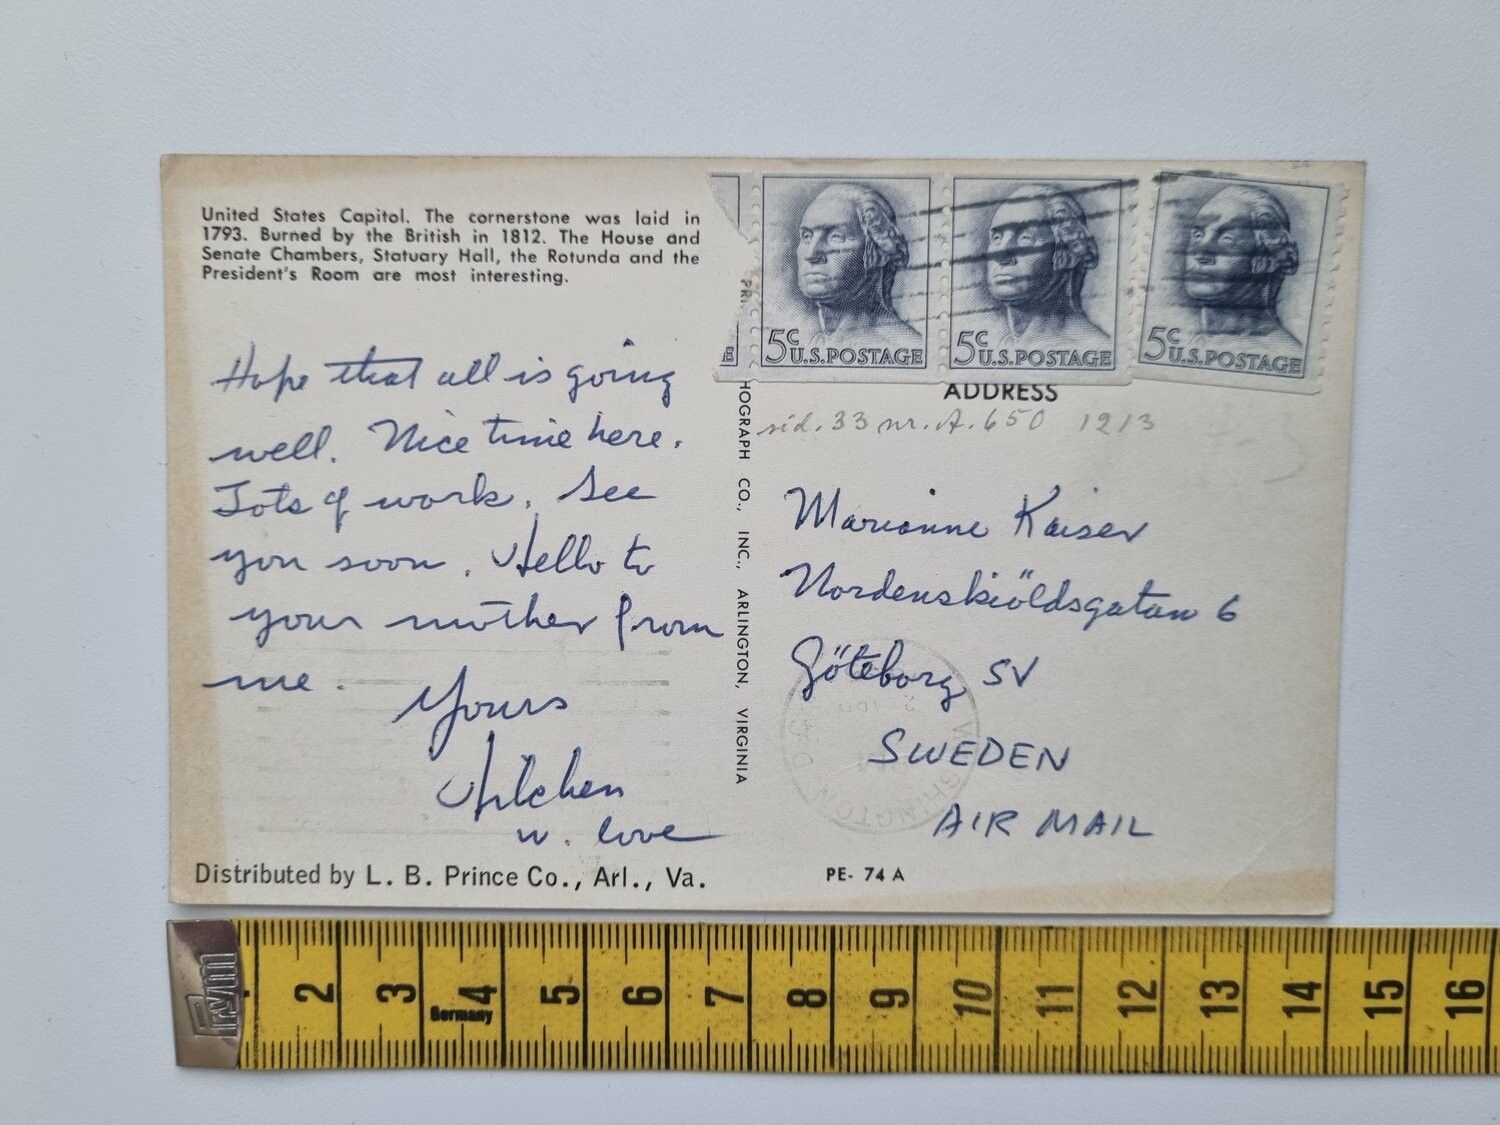 United States Capitol. The cornerstone was laid in
1793. Burned by the British in 1812. The House and
Senate Chambers, Statuary Hall, the Rotunda and the
President's Room are most interesting.
Hope that all is going
well. Nice time here.
Lots of work. See
you soon. Hello to
your mother from
me.
Yours
w. love
Distributed by L. B. Prince Co., Arl., Va.
HOGRAPH CO., INC., ARLINGTON, VIRGINIA
5c U.S. POSTAGE
5c U.S. POSTAGE
5c U.S. POSTAGE
ADDRESS
sid. 33 nr. A. 650 1213
Marianne Kaiser
Nordenskiöldsgatan 6
Göteborg SV
SWEDEN
AIR MAIL
WASHINGTON
PE- 74 A
2 3 4 5 6 7 8 9 10 11 12 13 14 15 16
Germany